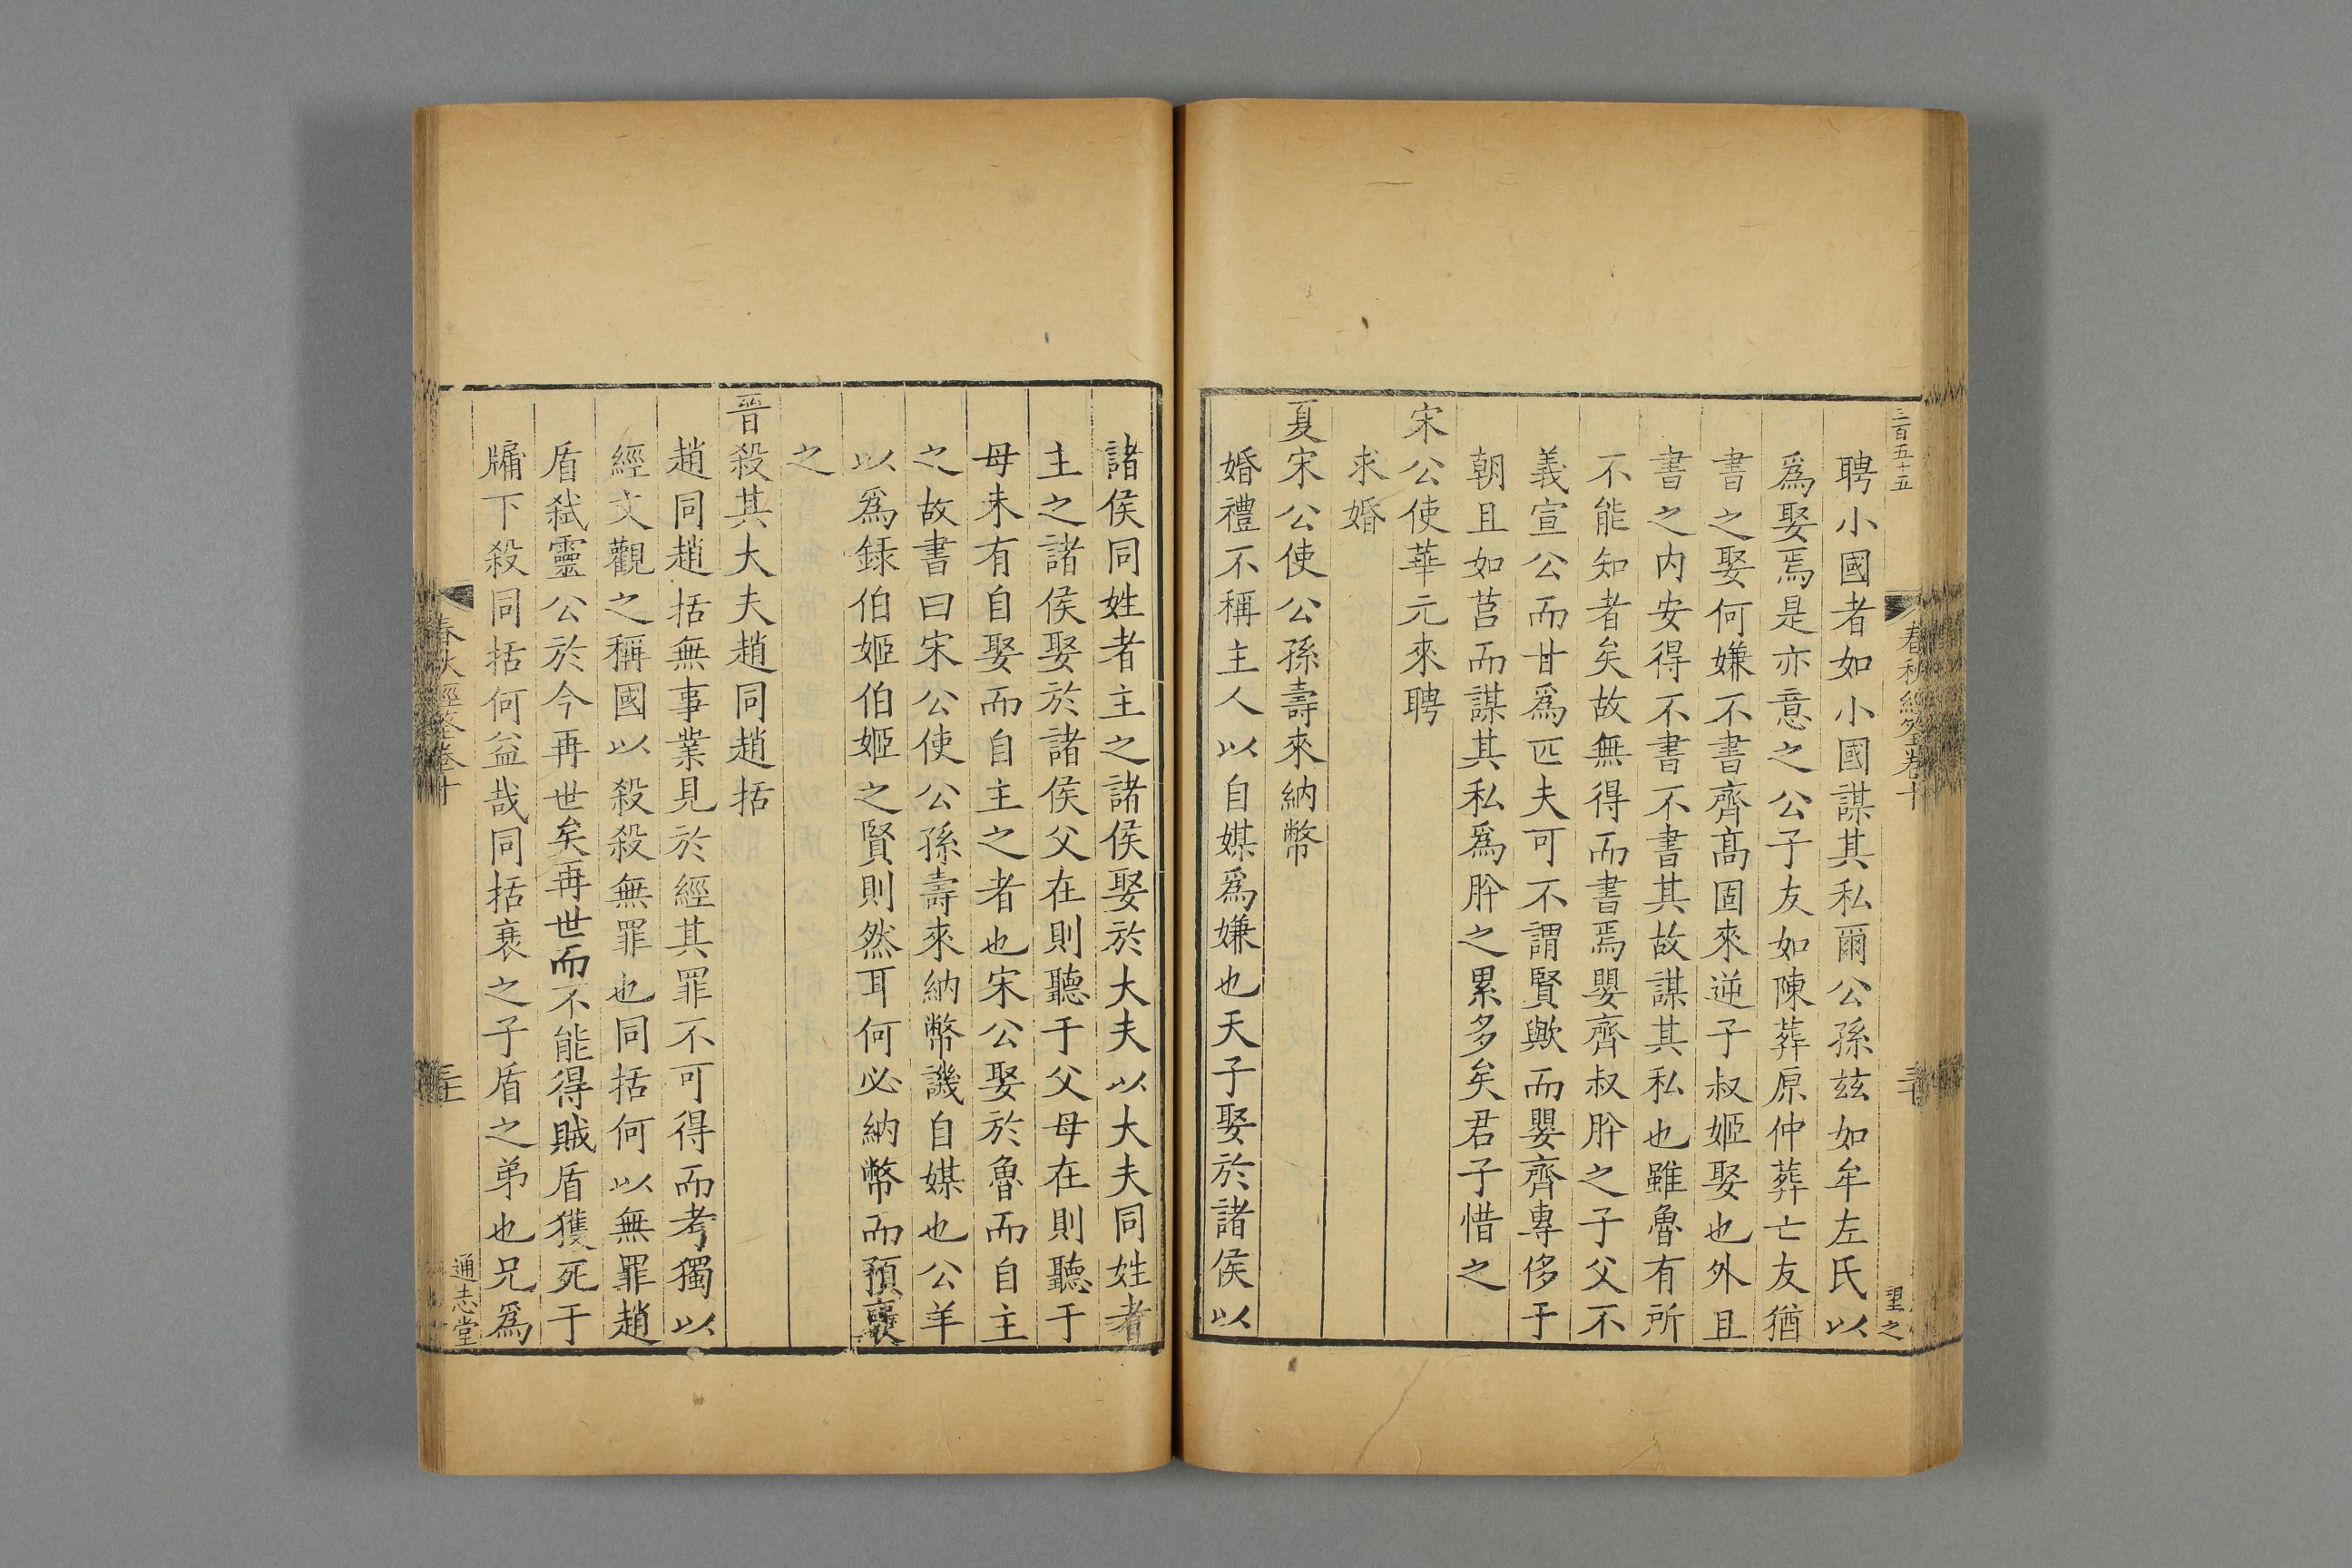 三百五十五
春秋經筌卷十
望之
聘小國者如小國謀其私爾公孫玆如牟左氏以
爲娶焉是亦意之公子友如陳葬原仲葬亡友猶
書之娶何嫌不書齊髙固來逆子叔姬娶也外且
書之内安得不書不書其故謀其私也雖魯有所
不能知者矣故無得而書焉嬰齊叔肸之子父不
義宣公而甘爲匹夫可不謂賢歟而嬰齊專侈于
朝且如莒而謀其私爲肸之累多矣君子惜之
宋公使華元來聘
求婚
夏宋公使公孫壽來納幣
婚禮不稱主人以自媒爲嫌也天子娶於諸侯以
諸侯同姓者主之諸侯娶於大夫以大夫同姓者
主之諸侯娶於諸侯父在則聽于父母在則聽于
母未有自娶而自主之者也宋公娶於魯而自主
之故書曰宋公使公孫壽來納幣譏自媒也公羊
以爲録伯姬伯姬之賢則然耳何必納幣而預襃
之
晉殺其大夫趙同趙括
趙同趙括無事業見於經其罪不可得而考獨以
經文觀之稱國以殺殺無罪也同括何以無罪趙
盾弑靈公於今再世矣再世而不能得賊盾獲死于
牖下殺同括何益哉同括衰之子盾之弟也兄爲
春秋經筌卷十
通志堂